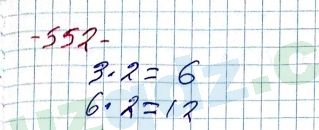 -552-
3·2=6
6·2=12